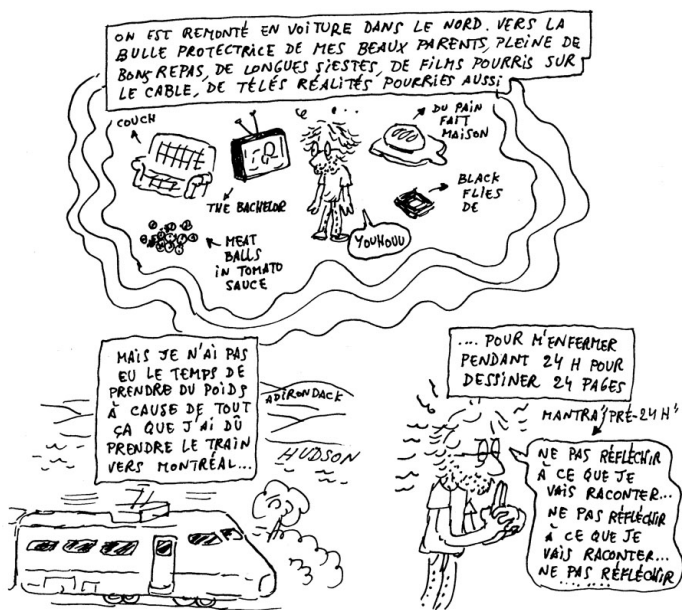 ON EST REMONTÉ EN VOITURE DANS LE NORD. VERS LA
BULLE PROTECTRICE DE MES BEAUX PARENTS, PLEINE DE
BONS REPAS, DE LONGUES SIESTES, DE FILMS POURRIS SUR
LE CABLE, DE TÉLÉS RÉALITÉS POURRIES AUSSI
COUCH
THE BACHELOR
MEAT
BALLS
IN TOMATO
SAUCE
YOUHOUU
DU PAIN
FAIT
MAISON
BLACK
FLIES
DE
MAIS JE N'AI PAS
EU LE TEMPS DE
PRENDRE DU POIDS
À CAUSE DE TOUT
ÇA QUE J'AI DÛ
PRENDRE LE TRAIN
VERS MONTRÉAL...
ADIRONDACK
HUDSON
.... POUR M'ENFERMER
PENDANT 24 H POUR
DESSINER 24 PAGES
MANTRA "PRÉ-24H"
NE PAS RÉFLÉCHIR
À CE QUE JE
VAIS RACONTER...
NE PAS RÉFLÉCHIR
À CE QUE JE
VAIS RACONTER...
NE PAS RÉFLÉCHIR
......